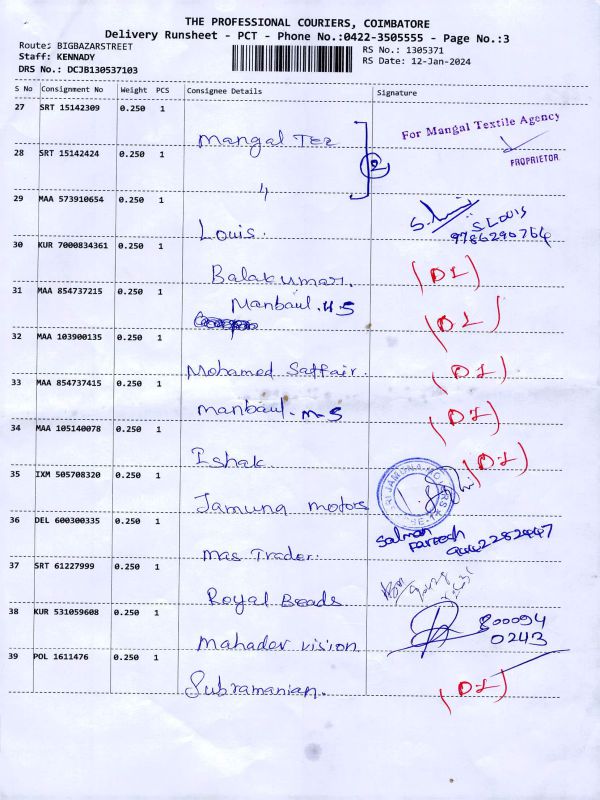 THE PROFESSIONAL COURIERS, COIMBATORE
Delivery Runsheet - PCT - Phone No.:0422-3505555 - Page No.:3
Route: BIGBAZARSTREET
RS No.: 1305371
Staff: KENNADY
RS Date: 12-Jan-2024
DRS No.: DCJB130537103
S No Consignment No Weight PCS Consignee Details Signature
27 SRT 15142309 0.250 1 Mangal Tex For Mangal Textile Agency
2
PROPRIETOR
28 SRT 15142424 0.250 1 "
29 MAA 573910654 0.250 1 Louis. S. LOUIS
9786290764
30 KUR 7000834361 0.250 1 Balakumar. (D1)
31 MAA 854737215 0.250 1 Manbaul. HS (D1)
32 MAA 103900135 0.250 1 Mohamed Saffair. (D1)
33 MAA 854737415 0.250 1 manbaul. m-s (D1)
34 MAA 105140078 0.250 1 Ishak (D1)
35 IXM 505708320 0.250 1 Jamuna motors
36 DEL 600300335 0.250 1 mas Trader. Salman
Fareeth 9442282447
37 SRT 61227999 0.250 1 Royal Beads
38 KUR 531059608 0.250 1 Mahadev vision 800094
0243
39 POL 1611476 0.250 1 Subramanian. (D1)